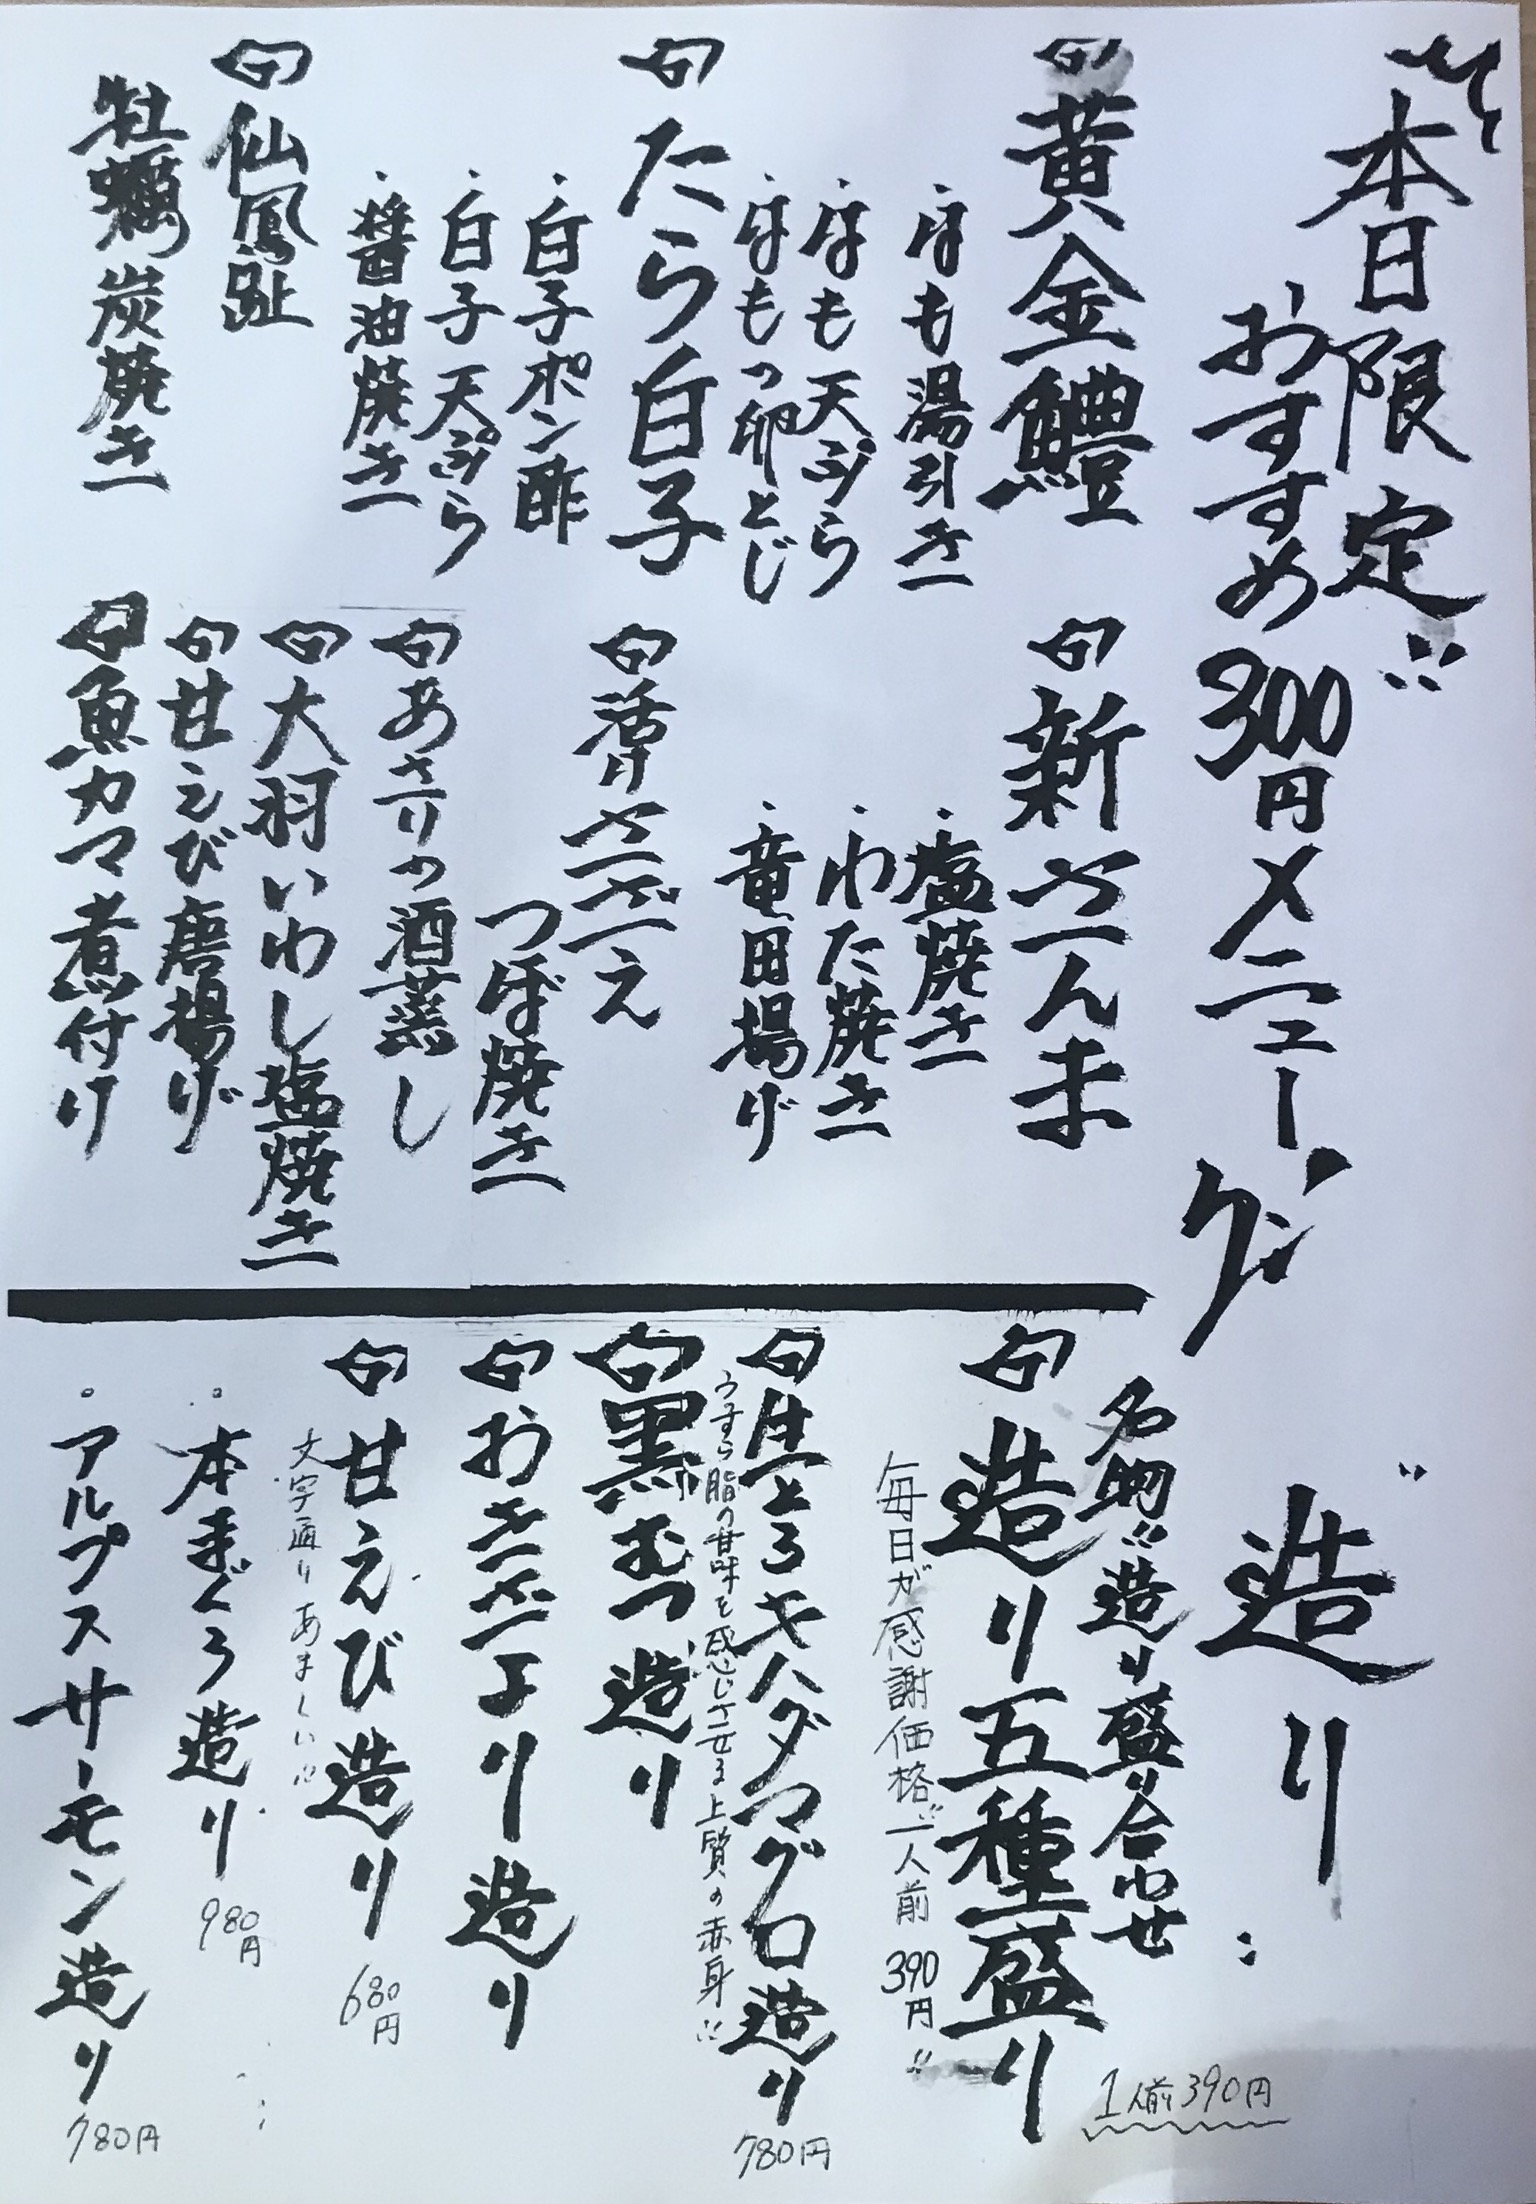 本日限定!!
おすすめ300円メニュー
黄金鱧
・はも湯引き
・はも天ぷら
・はもつ卵とじ
たら白子
・白子ポン酢
・白子天ぷら
・醤油焼き
仙鳳趾
牡蠣炭焼き
新さんま
・塩焼き
・わた焼き
・竜田揚げ
活けさざえ
つぼ焼き
あさりの酒蒸し
大羽いわし塩焼き
甘えび唐揚げ
魚カマ煮付け
造り
名物!!造り盛り合わせ
1人前390円
造り五種盛り
毎日が感謝価格!!一人前390円!!
生とろキハダマグロ造り
780円
うすら脂の甘味を感じさせる上質の赤身!!
黒むつ造り
おきざより造り
甘えび造り 680円
文字通りあまくい!!
・本まぐろ造り 980円
・アルプスサーモン造り
780円